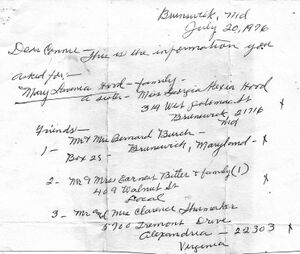 Brunswick, Md
July 20, 1976
Dear Connie This is the information you
asked for:-
Mary Hood - family -
a sister - Miss Georgia Hood
314 West Potomac St
Brunswick 21716 x
Md
Friends -
1 - Mr & Mrs Bernard Burch -
Box 25 - Brunswick, Maryland - x
2 - Mr & Mrs Earnest & family (1)
409 Walnut St x
Local
3 - Mr and Mrs Clarence Shumaker
5700 Tremont Drive x
Alexandria - 22303
Virginia